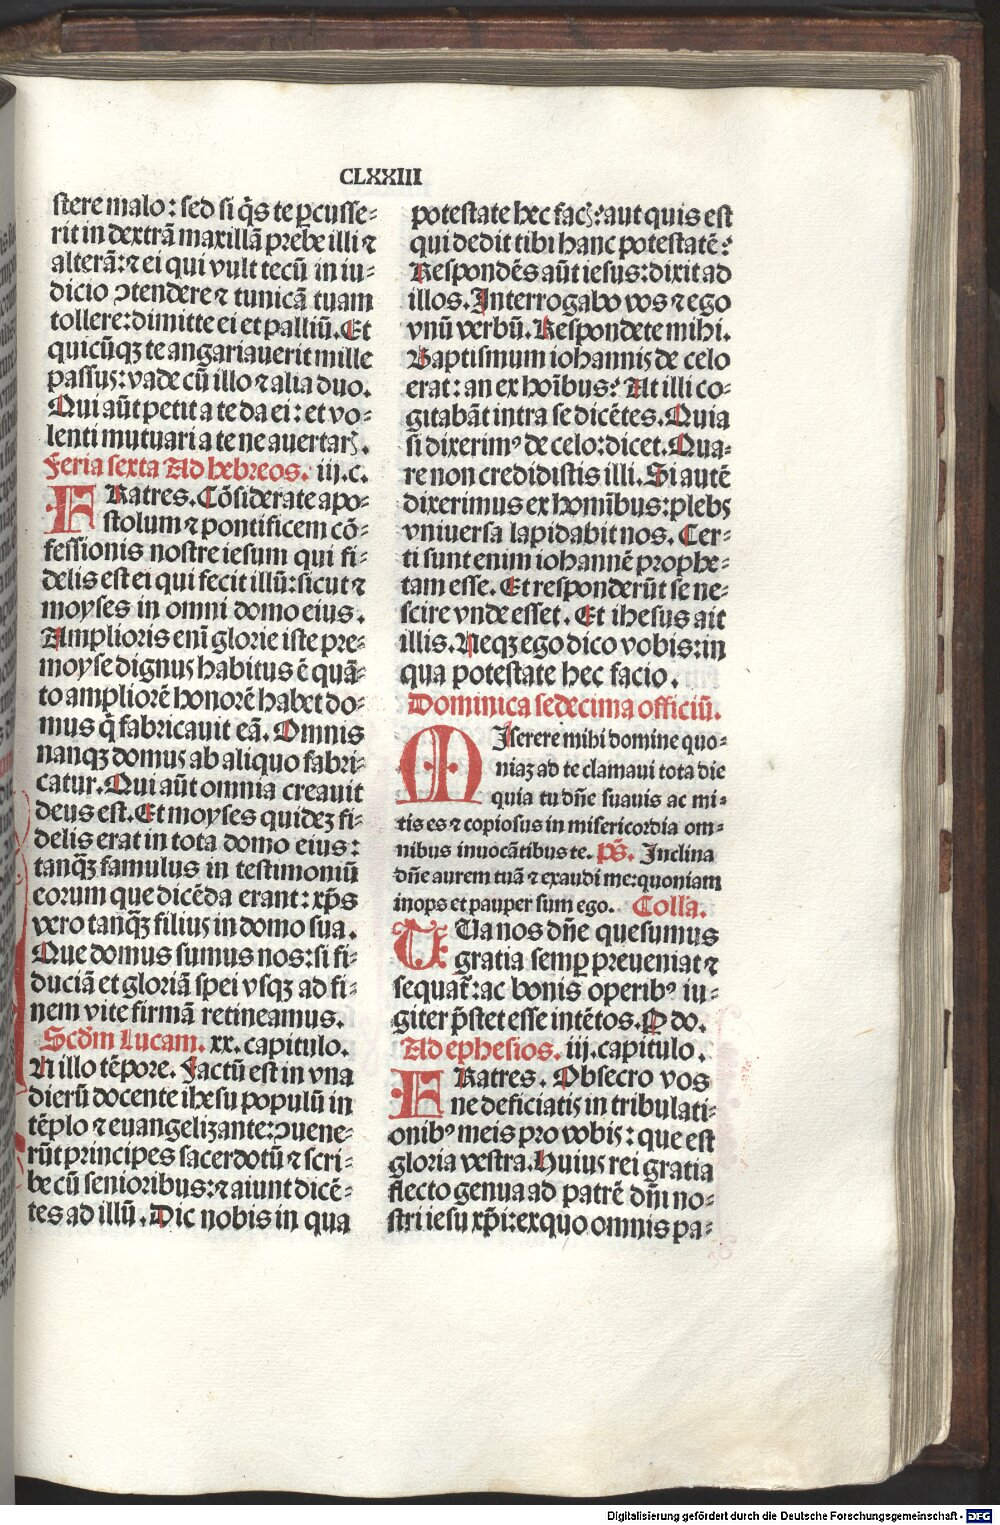 CLXXIII
stere malo: sed si q̃s te ꝑcusse⸗
rit in dextrã maxillã prebe illi ⁊
alterã: ⁊ ei qui vult tecũ in iu⸗
dicio ꝯtendere ⁊ tunicã tuam
tollere: dimitte ei et palliũ. Et
quicũqꝫ te angariauerit mille
passus: vade cũ illo ⁊ alia duo.
Qui aũt petit a te da ei: et vo⸗
lenti mutuari a te ne auertarꝭ.
Feria sexta Ad hebreos. iij. c.
FRatres. Cõsiderate apo⸗
stolum ⁊ pontificem cõ⸗
fessionis nostre iesum qui fi⸗
delis est ei qui fecit illũ: sicut ⁊
moyses in omni domo eius.
Amplioris enĩ glorie iste pre⸗
moyse dignus habitus ẽ quã⸗
to ampliorẽ honorẽ habet do⸗
mus q̃ fabricauit eã. Omnis
nanqꝫ domus ab aliquo fabri⸗
catur. Qui aũt omnia creauit
deus est. Et moyses quideꝫ fi⸗
delis erat in tota domo eius:
tanq̃ꝫ famulus in testimoniũ
eorum que dicẽda erant: xp̃s
vero tanq̃ꝫ filius in domo sua.
Que domus sumus nos: si fi⸗
duciã et gloriã spei vsqꝫ ad fi⸗
nem vite firmã retineamus.
Scdm̃ Lucam. xx. capitulo.
N illo tẽpore. Factũ est in vna
dierũ docente ihesu populũ in
tẽplo ⁊ euangelizante: ꝯuene⸗
rũt principes sacerdotũ ⁊ scri⸗
be cũ senioribus: ⁊ aiunt dicẽ⸗
tes ad illũ. Dic nobis in qua
potestate hec facꝭ: aut quis est
qui dedit tibi hanc potestatẽ:
Respondẽs aũt iesus: dixit ad
illos. Interrogabo vos ⁊ ego
vnũ verbũ. Respondete mihi.
Baptismum iohannis de celo
erat: an ex hoĩbus: At illi co⸗
gitabãt intra se dicẽtes. Quia
si dixerimꝰ de celo: dicet. Qua⸗
re non credidistis illi. Si autẽ
dixerimus ex homĩbus: plebs
vniuersa lapidabit nos. Cer⸗
ti sunt enim iohannẽ prophe⸗
tam esse. Et responderũt se ne⸗
scire vnde esset. Et ihesus ait
illis. Neqꝫ ego dico vobis: in
qua potestate hec facio.
Dominica sedecima officiũ.
MIserere mihi domine quo⸗
niaꝫ ad te clamaui tota die
quia tu dñe suauis ac mi⸗
tis es ⁊ copiosus in misericordia om⸗
nibus inuocãtibus te. p̃s. Inclina
dñe aurem tuã ⁊ exaudi me: quoniam
inops et pauper sum ego. Colla.
TUa nos dñe quesumus
gratia semꝑ preueniat ⁊
sequat᷑: ac bonis operibꝰ iu⸗
giter p̃stet esse intẽtos. P do.
Ad ephesios. iij. capitulo.
FRatres. Obsecro vos
ne deficiatis in tribulati⸗
onibꝰ meis pro vobis: que est
gloria vestra. Huius rei gratia
flecto genua ad patrẽ dñi no⸗
stri iesu xp̃i: ex quo omnis pa⸗
Digitalisierung gefördert durch die Deutsche Forschungsgemeinschaft - DFG